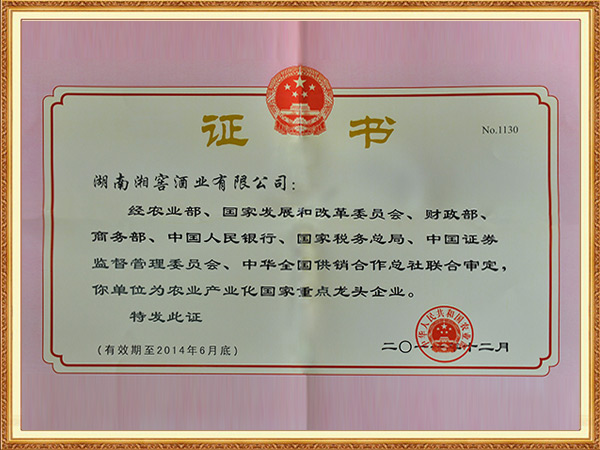 证书
No.1130
湖南湘窖酒业有限公司：
经农业部、国家发展和改革委员会、财政部、
商务部、中国人民银行、国家税务总局、中国证券
监督管理委员会、中华全国供销合作总社联合审定，
你单位为农业产业化国家重点龙头企业。
特发此证
中华人民共和国农业部
二〇一 年十二月
(有效期至2014年6月底)